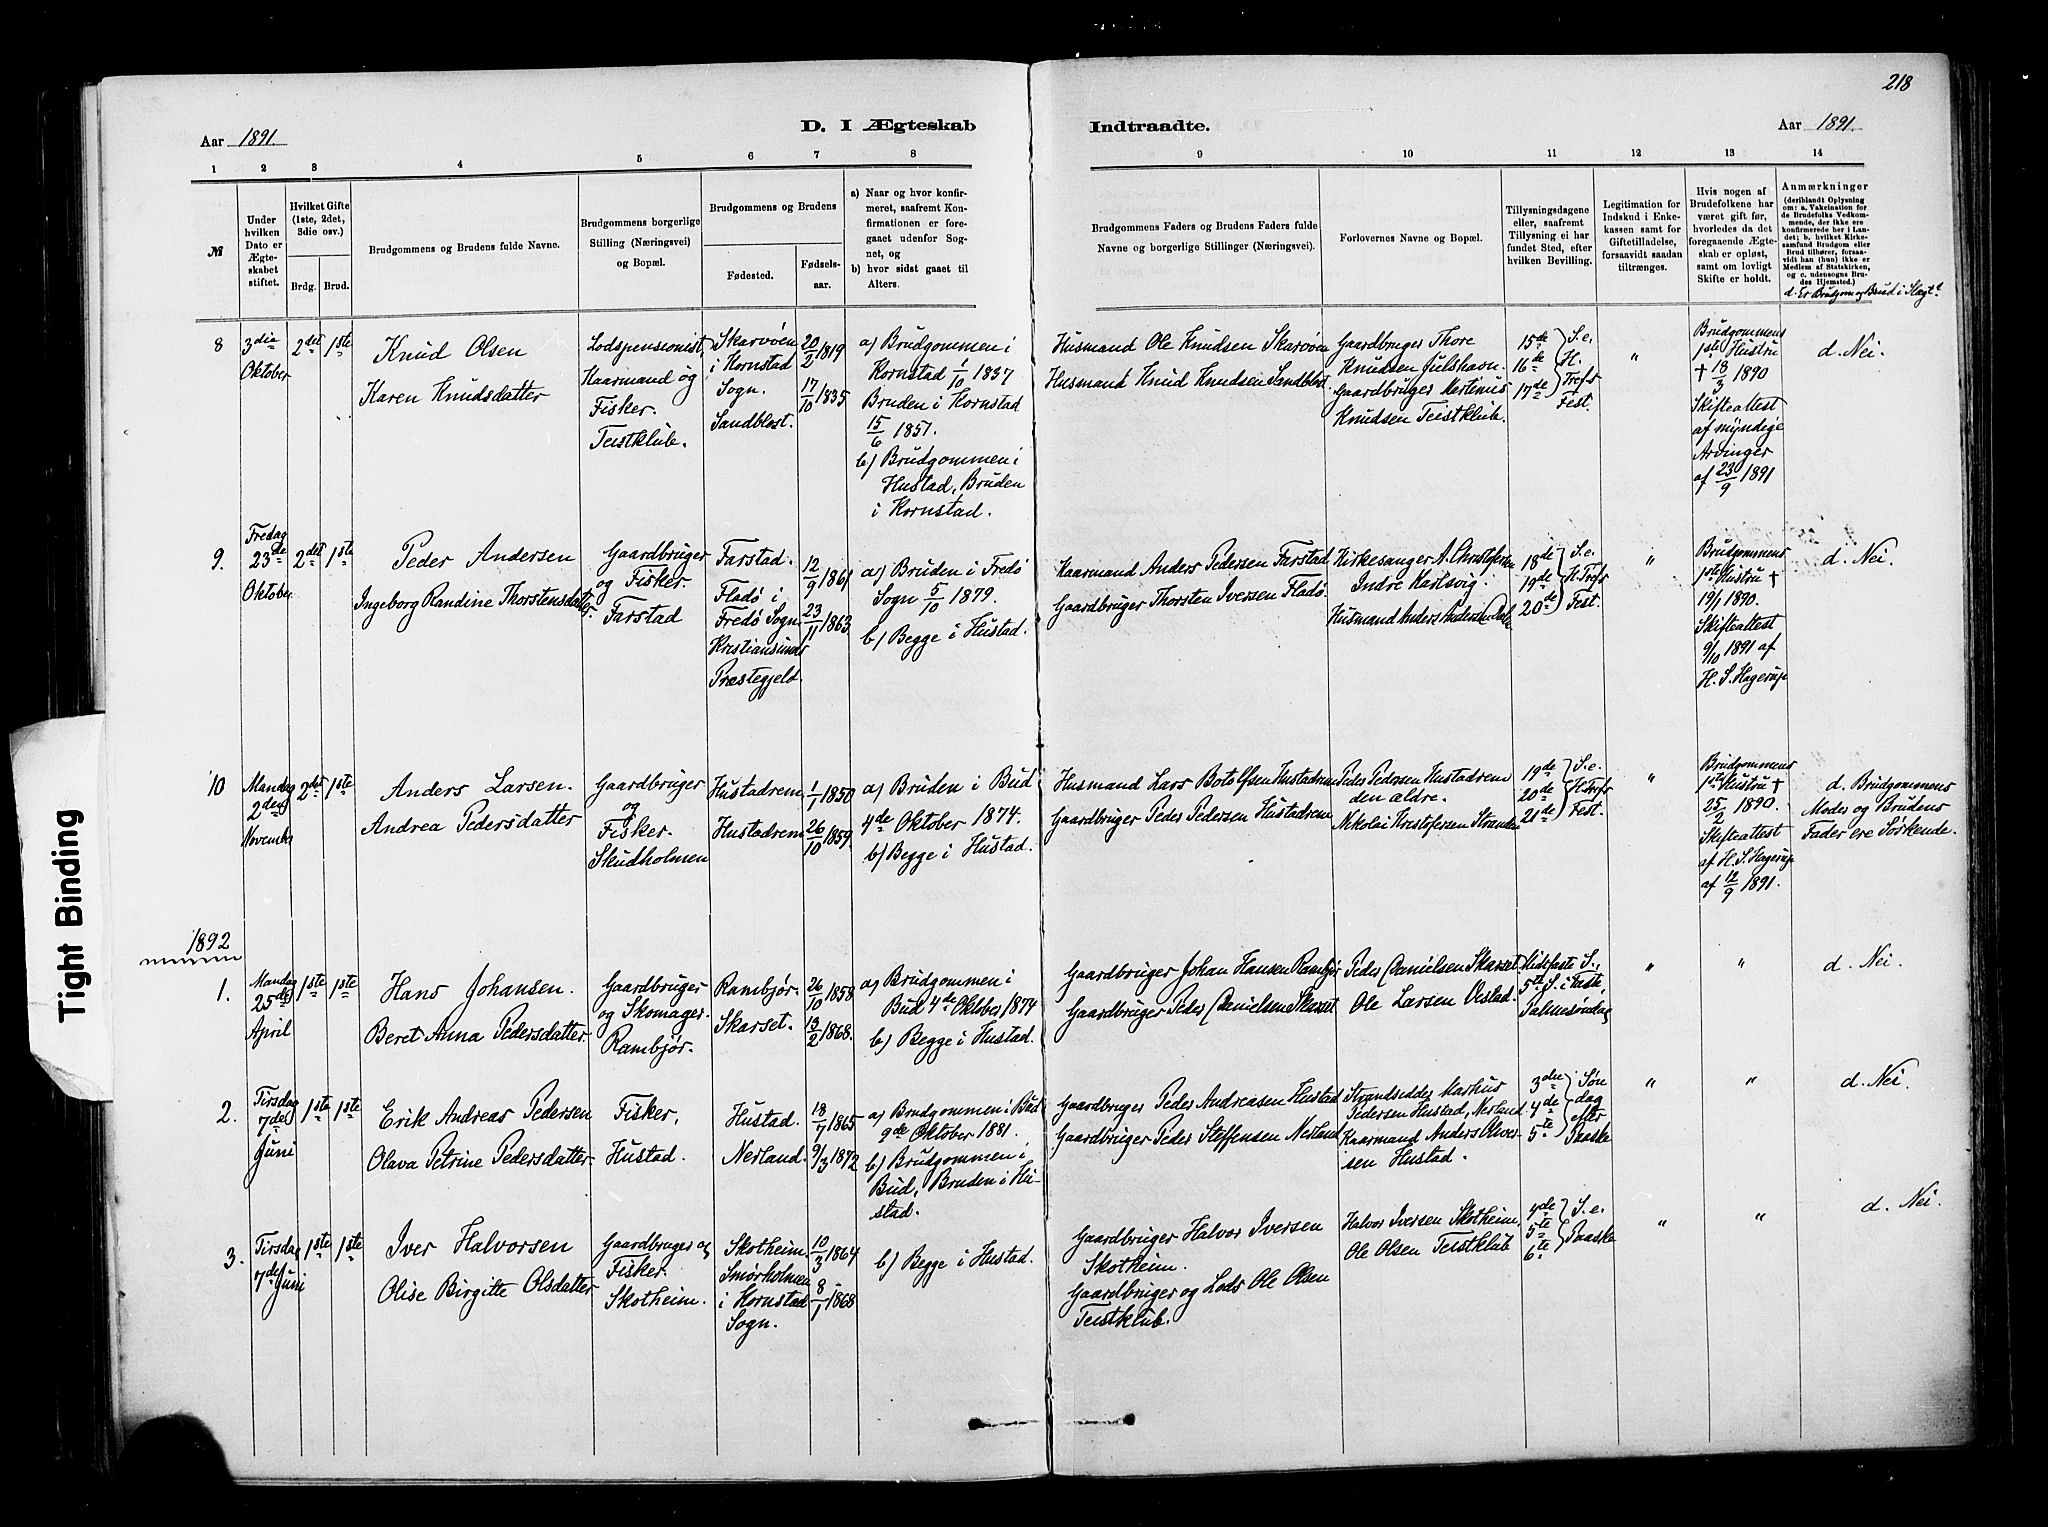 218
D. I Ægteskab Indtraadte.
Aar 1891.
Aar 1891.
1 2 3 4 5 6 7 8 9 10 11 12 13 14
№
Under hvilken Dato er Ægteskabet stiftet.
Hvilket Gifte (1ste, 2det, 3die osv.)
Brdg. Brud.
Brudgommens og Brudens fulde Navne.
Brudgommens borgerlige Stilling (Næringsvei) og Bopæl.
Brudgommens og Brudens
Fødested.
Fødselsaar.
a) Naar og hvor konfirmeret, saafremt Konfirmationen er foregaaet udenfor Sognet, og
b) hvor sidst gaaet til Alters.
Brudgommens Faders og Brudens Faders fulde Navne og borgerlige Stillinger (Næringsvei).
Forlovernes Navne og Bopæl.
Tillysningsdagene eller, saafremt Tillysning ei har fundet Sted, efter hvilken Bevilling.
Legitimation for Indskud i Enkekassen samt for Giftetilladelse, forsaavidt saadan tiltrænges.
Hvis nogen af Brudefolkene har været gift før, hvorledes da det foregaaende Ægteskab er opløst, samt om lovligt Skifte er holdt.
Anmærkninger
(deriblandt Oplysning om: a. Vakcination for de Brudefolks Vedkommende, der ikke ere konfirmerede her i Landet; b. hvilket Kirkesamfund Brudgom eller Brud tilhører, forsaavidt han (hun) ikke er Medlem af Statskirken, og c. udensogns Brudes Hjemsted.)
d. Er Brudgom og Brud i Slægt?
8
3die Oktober
2det 1ste
Knud Olsen
Karen Knudsdatter
Lodspensionist, Kaarmand og Fisker. Teistklub.
Skarvøen i Kornstad Sogn.
Sandblost.
20/2 1819
17/10 1835
a) Brudgommen i Kornstad 1/10 1837
Bruden i Kornstad 15/6 1851.
b) Brudgommen i Hustad, Bruden i Kornstad.
Husmand Ole Knudsen Skarvøen
Husmand Knud Knudsen Sandblost.
Gaardbruger Thore Knudsen Julshavn.
Gaardbruger Martinus Knudsen Teistklub.
15de 16de 17de } S. e. H. Trefs Fest.
"
Brudgommens 1ste Hustru † 18/3 1890
Skifteattest af myndige Arvinger af 23/9 1891
d. Nei.
9.
Fredag 23de Oktober
2det 1ste
Peder Andersen
Ingeborg Randine Thorstensdatter.
Gaardbruger og Fisker. Farstad
Farstad.
Fladø i Fredø Sogn Kristiansunds Præstegjeld.
12/9 1861
23/11 1863
a) Bruden i Fredø Sogn 5/10 1879.
b) Begge i Hustad.
Kaarmand Anders Pedersen Farstad
Gaardbruger Thorsten Iversen Fladø.
Kirkesanger A. Christofersen Indre Karlsvig.
Husmand Anders Andersen
18de 19de 20de } S. e. H. Trefs Fest.
"
Brudgommens 1ste Hustru † 19/1 1890.
Skifteattest 9/10 1891 af H. S. Hagerup
d. Nei.
10
Mandag 2den Novembr
2det 1ste
Anders Larsen.
Andrea Pedersdatter
Gaardbruger og Fisker. Skudholmen
Hustadrem
Hustadrem
1/1 1850
26/10 1859.
a) Bruden i Bud 4de Oktober 1874.
b) Begge i Hustad.
Husmand Lars Botolfsen Hustadrem
Gaardbruger Peder Pedersen Hustadrem
Peder Pedersen Hustadrem den ældre.
Nikolai Kristofersen Stranden
19de 20de 21de } S. e. H. Trefs Fest.
"
Brudgommens 1ste Hustru † 25/2 1890.
Skifteattest af H. S. Hagerup af 12/9 1891.
d. Brudgommens Moder og Brudens Fader ere Søskende.
1892
1.
Mandag 25de April
1ste 1ste
Hans Johansen.
Beret Anna Pedersdatter.
Gaardbruger og Skomager. Rambjør.
Rambjør.
Skarset.
26/10 1858
13/2 1868.
a) Brudgommen i Bud 4de Oktober 1874
b) Begge i Hustad.
Gaardbruger Johan Hansen Rambjør
Gaardbruger Peder Danielsen Skarset
Peder Danielsen Skarset
Ole Larsen Vestad.
Midtfaste S., 5te S. i Faste, Palmesøndag
"
"
d. Nei.
2.
Tirsdag 7de Juni
1ste 1ste
Erik Andreas Pedersen
Olava Petrine Pedersdatter.
Fisker, Hustad.
Hustad.
Nerland.
18/7 1865
9/3 1872
a) Brudgommen i Bud 9de Oktober 1881.
b) Brudgommen i Bud, Bruden i Hustad.
Gaardbruger Peder Andreasen Hustad
Gaardbruger Peder Steffensen Nerland
Strandsidder Markus Pedersen Hustad, Nerland
Kaarmand Anders Oliversen Hustad.
3die 4de 5te } Søndag efter Paaske
"
"
d. Nei.
3.
Tirsdag 7de Juni
1ste 1ste
Iver Halvorsen
Olise Birgitte Olsdatter
Gaardbruger og Fisker. Skotheim.
Skotheim.
Smørholmen i Kornstad Sogn.
10/3 1864
8/1 1868
b) Begge i Hustad.
Gaardbruger Halvor Iversen Skotheim.
Gaardbruger og Lods Ole Olsen Teistklub.
Halvor Iversen Skotheim,
Ole Olsen Teistklub
4de 5te 6te } S. e. Paaske
"
"
d. Nei.
Tight Binding